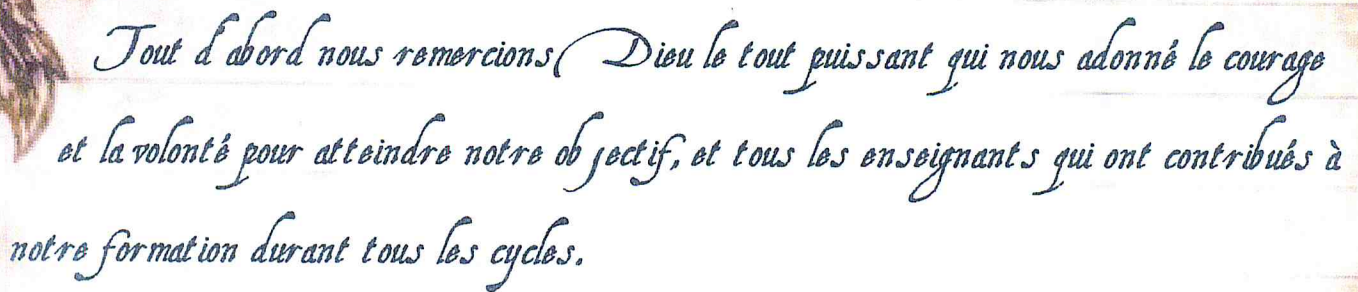 Tout d'abord nous remercions Dieu le tout puissant qui nous adonné le courage
et la volonté pour atteindre notre objectif, et tous les enseignants qui ont contribués à
notre formation durant tous les cycles.